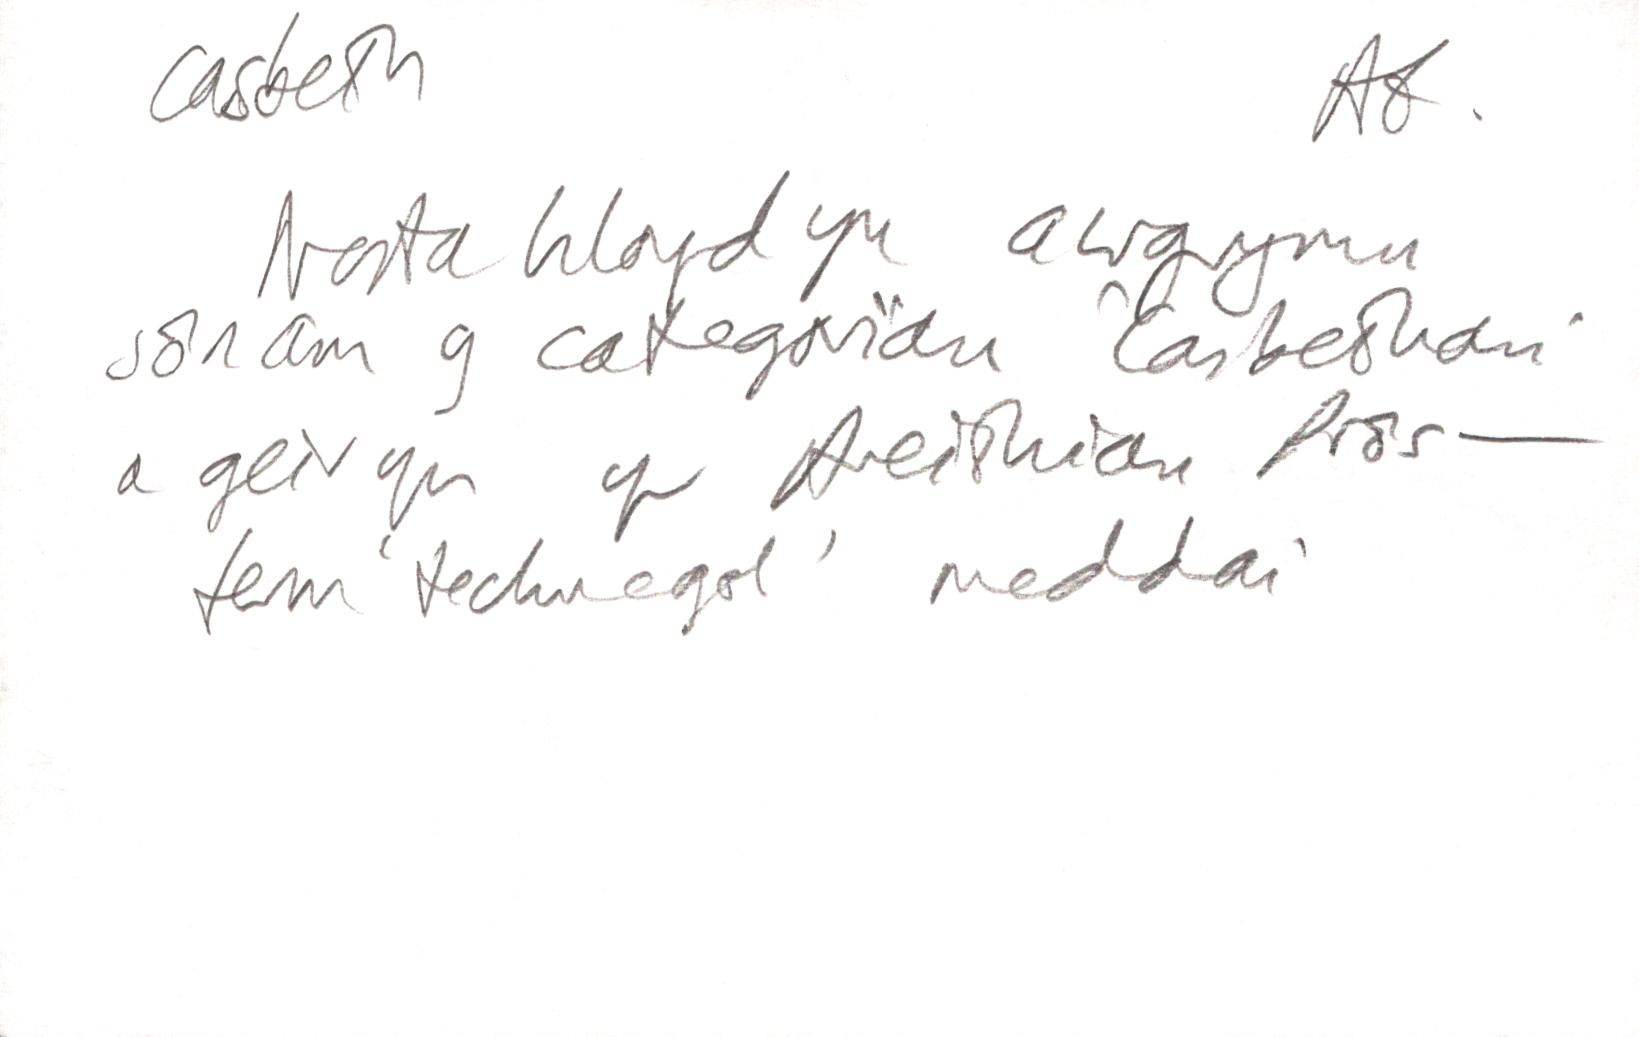 Casbeth
Nesta Lloyd yn awgrymu
sôn am y categorïau "Casbethau"
a geir yn yr Areithiau Pros —
term 'technegol' meddai